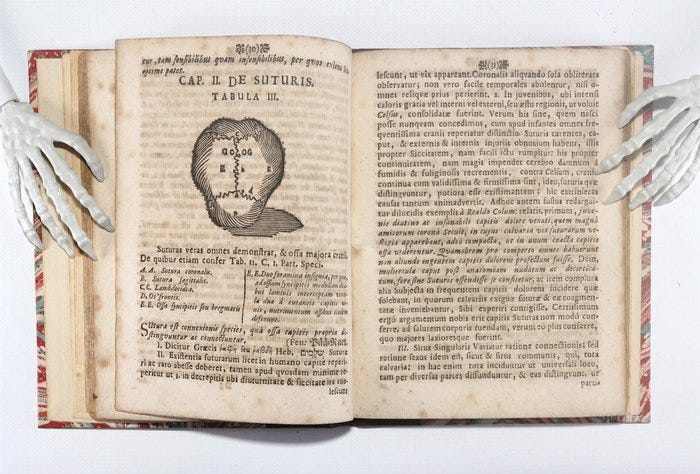 (30)
tur, tam sensibilibus quam insensibilibus, per quos
optime patet.
CAP. II. DE SUTURIS.
TABULA III.
Suturas veras omnes demonstrat, & ossa majora cranii
De quibus etiam confer Tab. 11. C. 1. Part. Speci.
A. A. Sutura coronalis.
B. Sutura sagittalis.
C C. Lambdoidea.
D. Os frontis.
E. E. Ossa syncipitis seu bregmatis
E, E. Duo foramina insignia, per quæ,
ad ossium syncipitis medullam duabus
laminis interceptam venulæ
duæ à cutaneis capitis venis,
nutrimentum ossibus eisdem
deferunt.
Sutura est connexionis species, quâ ossa capitis propria distinguuntur
ac connectuntur.
I. Dicitur Græcis Heb. Sutura
II. Existentia suturarum licet in humano capite reperiri
ac raro abesse deberet, tamen apud quosdam minime reperitur
ut 1. in decrepitis ubi diuturnitate & siccitate ita coalescunt
(31)
lescunt, ut vix appareant. Coronalis aliquando sola obliterata
observatur; non vero facile temporales abolentur, nisi omnes
reliquæ prius perierint. 2. In juvenibus, ubi intensi
caloris gratia vel interni vel externi, seu æstu regionis, ut voluit
Celsus, consolidatæ fuerint. Verum his sine, quem nasci
posse nunquam concedimus, cum apud infantes omnes frequentissima
cranii reperiatur distinctio. Suturis carentes, caput,
& externis & internis injuriis obnoxium habent, illis
propter Siccitatem, nam facili ictu rumpitur: his propter
continuitatem, nam magis impendet cerebro damnum à
fumidis & fuliginosis recrementis, contra Celsum, cranii
continua cum validissima & firmissima sint, ideo, suturis quæ
distinguuntur, potiora esse existimantem; hic extrinsecas
causas tantum animadvertit. Adhuc autem fusius redarguitur
dilucidis exemplis à Realdo Colum: relatis, primum, juvenis
diutino ac insanabili capitis dolore vexati, quem magnâ
amicorum coronâ Secuit, in cujus calvaria vix suturarum vestigia
apparebant, adeo compacta, ut in unum coacta capitis
ossa viderentur. Quamobrem pro comperto omnes habuerunt
non aliunde ingentem capitis dolorem profectum fuisse. Dein,
mulierculæ caput post anatomiam nudatum ac decorticatum,
fere sine Suturis offendisse se confitetur, ac item complura
alia Subjecta in frequentem capitis dolorem incidere quæ
solebant, in quorum calvariis exiguæ suturæ & ex coagmentatæ
inveniebantur, Sibi experiri contigisse. Certissimum
ergo argumentum nobis erit capitis Suturas non modò conferre,
ad salutem corporis tuendam, verum eò plus conferre,
quo majores laxioresque fuerint.
III. Situs Singularis Variatur ratione connectionis; sed
ratione sexus idem est, sicut & situs communis, qui, tota
calvaria: in hac enim tota inciduntur ut universali loco,
tam per diversas partes diffunduntur, & eas distinguunt, ut
partiæ